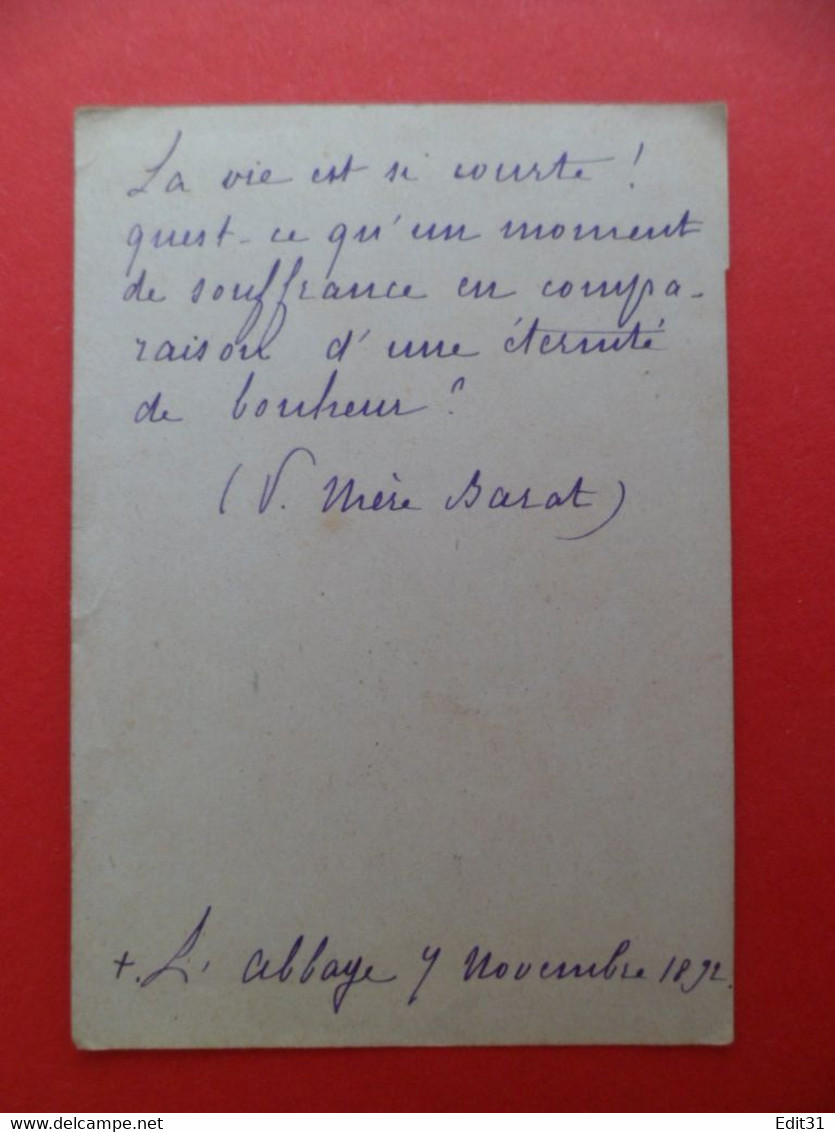 La vie est si courte !
quest-ce qu'un moment
de souffrance en compa-
raison d'une éternité
de bonheur ?
(V. Mère Barat)
+. L'abbaye 7 Novembre 1892.
Edit31